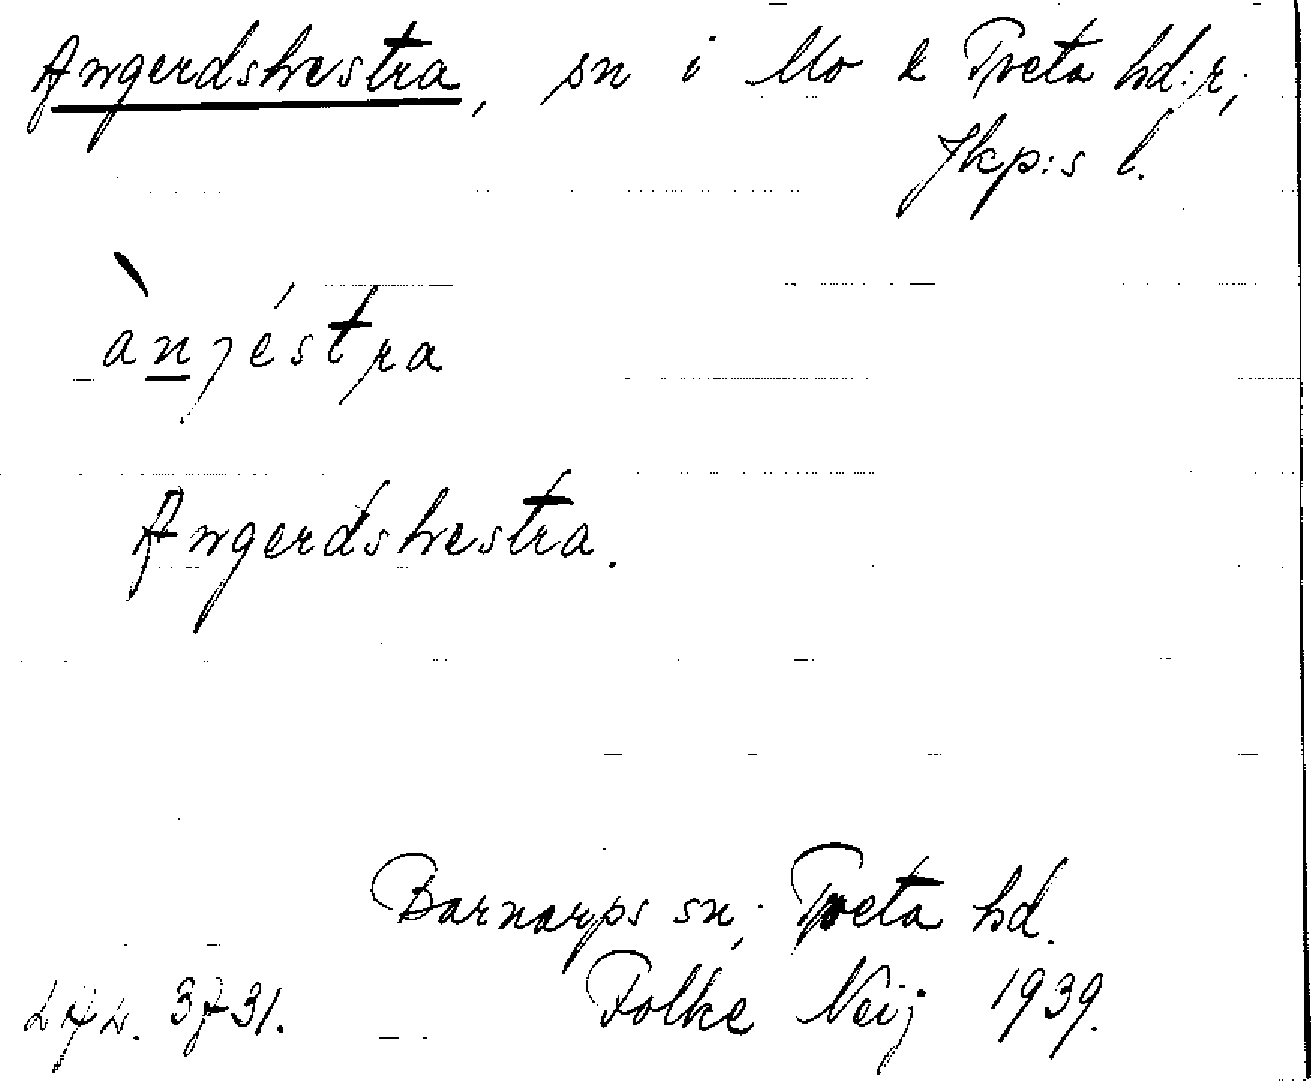 Angerdshestra, sn i Mo o Tveta hd:r,
Jkp:s l.
ànjéstra
Angerdshestra.
Barnarps sn, Tveta hd.
3731. Folke Neij 1939.